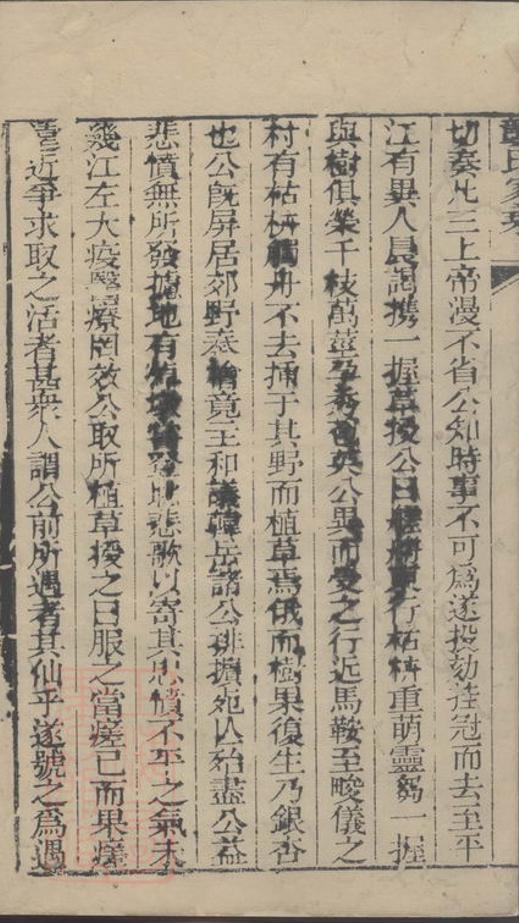 氏家乘
切奏凡三上帝漫不省公知時事不可爲遂投劾挂冠而去至平
江有異人晨謁携一握草授公曰東行枯枿重萌靈芻一握
與樹俱榮千枝萬莖公異而受之行近馬鞍至畯儀之
村有枯枿觸舟不去插于其野而植草焉俄而樹果復生乃銀杏
也公旣屏居郊野秦檜竟主和議韓岳諸公排擯死亾殆盡公益
悲憤無所發攄地有登此悲歌以寄其忠憤不平之氣未
幾江左大疫醫療罔效公取所植草授之曰服之當瘥已而果瘥
遠近爭求取之活者甚衆人謂公前所遇者其仙乎遂號之爲遇